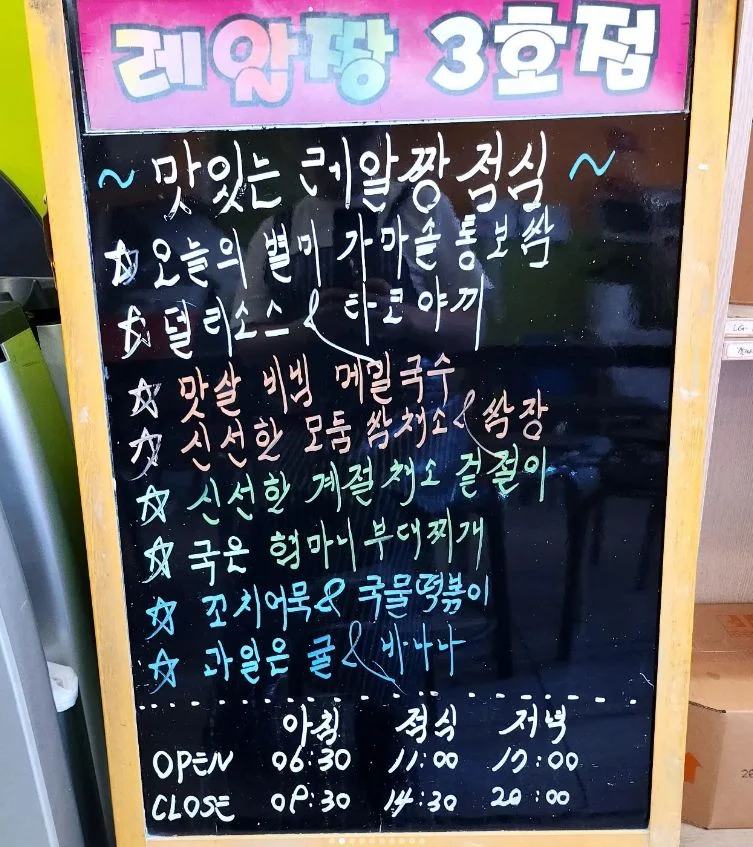 레알짱 3호점
~ 맛있는 레알짱 점심 ~
☆ 오늘의 별미 가마솥 통보쌈
☆ 델리소스 & 타코야끼
☆ 맛살 비빔 메밀국수
☆ 신선한 모둠 쌈채소 & 쌈장
☆ 신선한 계절채소 겉절이
☆ 국은 할마니 부대찌개
☆ 꼬치어묵 & 국물떡볶이
☆ 과일은 귤 & 바나나
아침 점심 저녁
OPEN 06:30 11:00 17:00
CLOSE 09:30 14:30 20:00